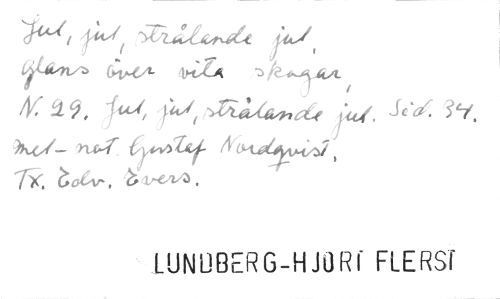 Jul, jul, strålande jul,
glans över vita skogar,
N. 29. Jul, jul, strålande jul. Sid. 34.
Mel-not. Gustaf Nordqvist.
Tx. Edv. Evers.
LUNDBERG-HJORT FLERST